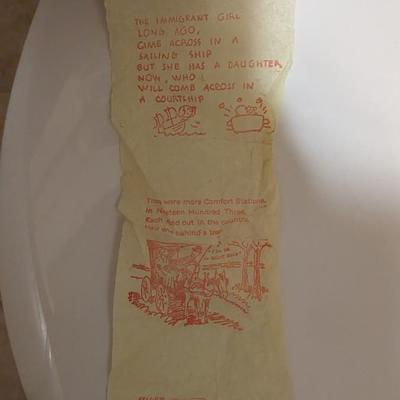 THE IMMIGRANT GIRL
LONG AGO,
CAME ACROSS IN A
SAILING SHIP
BUT SHE HAS A DAUGHTER
NOW, WHO
WILL COMB ACROSS IN
A COURTSHIP
There were more Comfort Stations,
In Nineteen Hundred Three,
Each and out in the country,
Was behind a tree